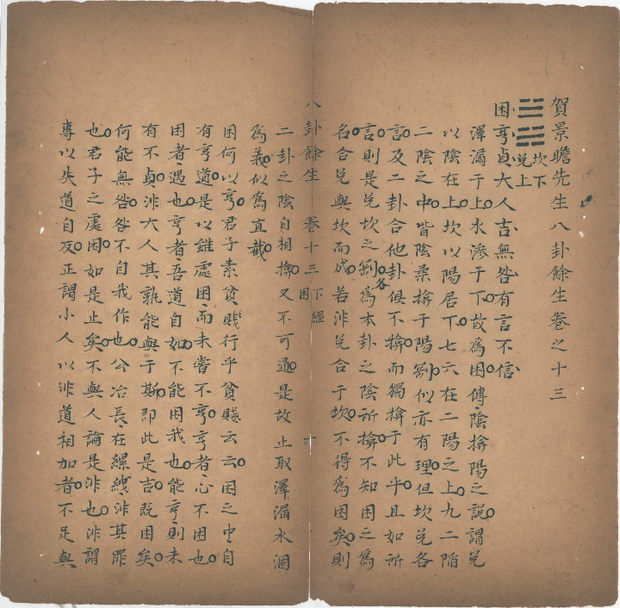 賀景瞻先生八卦餘生卷之十三
坎下
兌上
困亨貞大人吉無咎有言不信
澤漏于上水滲于下故爲困傳陰揜陽之說謂兌
以陰在上坎以陽居下七六在二陽之上九二陷
二陰之中皆陰柔揜于陽剛似亦有理但坎兌各
言及二卦合他卦俱不揜而獨揜于此乎且如所
言則是兌坎之剛各爲本卦之陰所揜不知困之爲
名合兌與坎而成若非兌合于坎不得爲困矣則
八卦餘生 卷十三 下經 困 十
二卦之陰自相揜又不可通是故止取澤漏水涸
爲義似爲直截
困何以亨君子素貧賤行乎貧賤云云困之中自
有亨道是以雖處困而未嘗不亨亨者心不困也
困者遇也亨者吾道自如不能困我也能亨則未
有不貞非大人其孰能與于斯即此是吉既困矣
何能無咎咎不自我作也公冶長在縲絏非其罪
也君子之處困如是止矣不與人論是非也非謂
專以失道自反正謂小人以非道相加者不足與